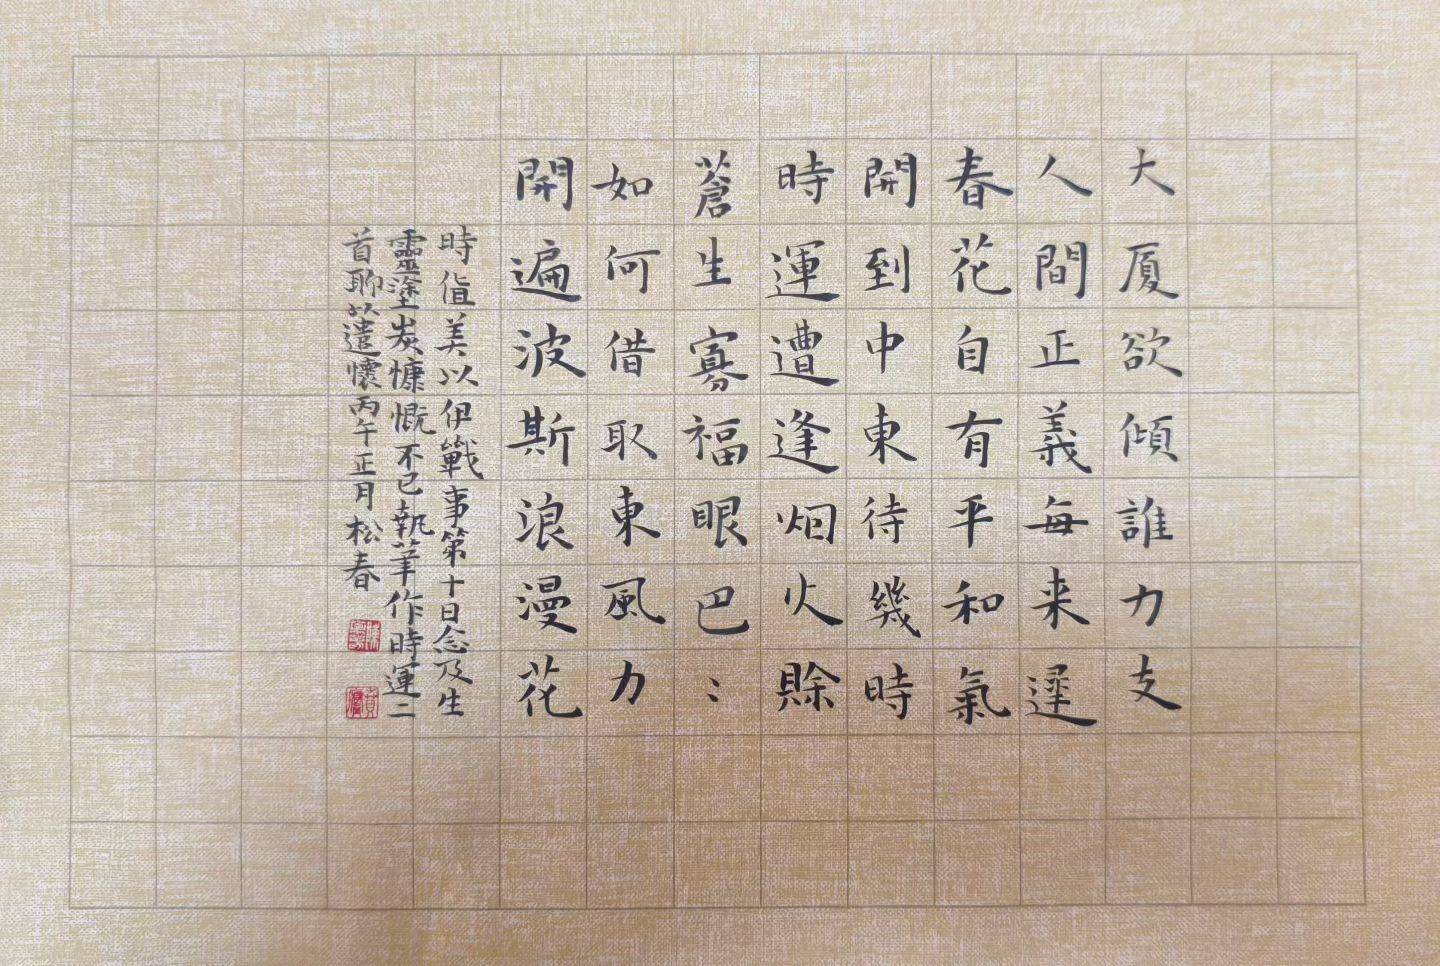 大厦欲傾誰力支
人間正義每来遲
春花自有平和氣
開到中東待幾時
時運遭逢烟火賖
蒼生寡福眼巴：
如何借取東風力
開遍波斯浪漫花
時值美以伊戰事第十日念及生
靈塗炭慷慨不已執筆作時運二
首聊以遣懷丙午正月松春